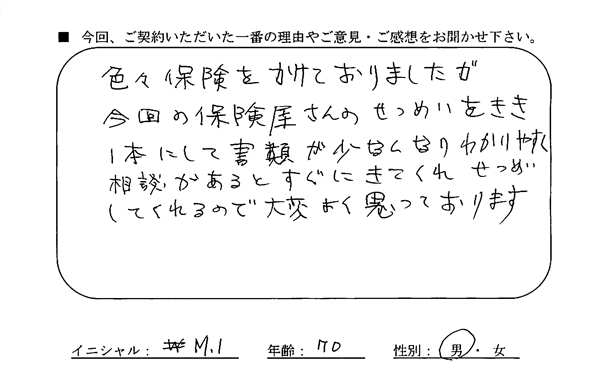 ■ 今回、ご契約いただいた一番の理由やご意見・ご感想をお聞かせ下さい。
色々保険をかけておりましたが
今回の保険屋さんのせつめいをきき
1本にして書類が少なくなりわかりやすく
相談があるとすぐにきてくれ せつめい
してくれるので大変よく思っております
イニシャル： M.I 年齢： 70 性別： 男・女